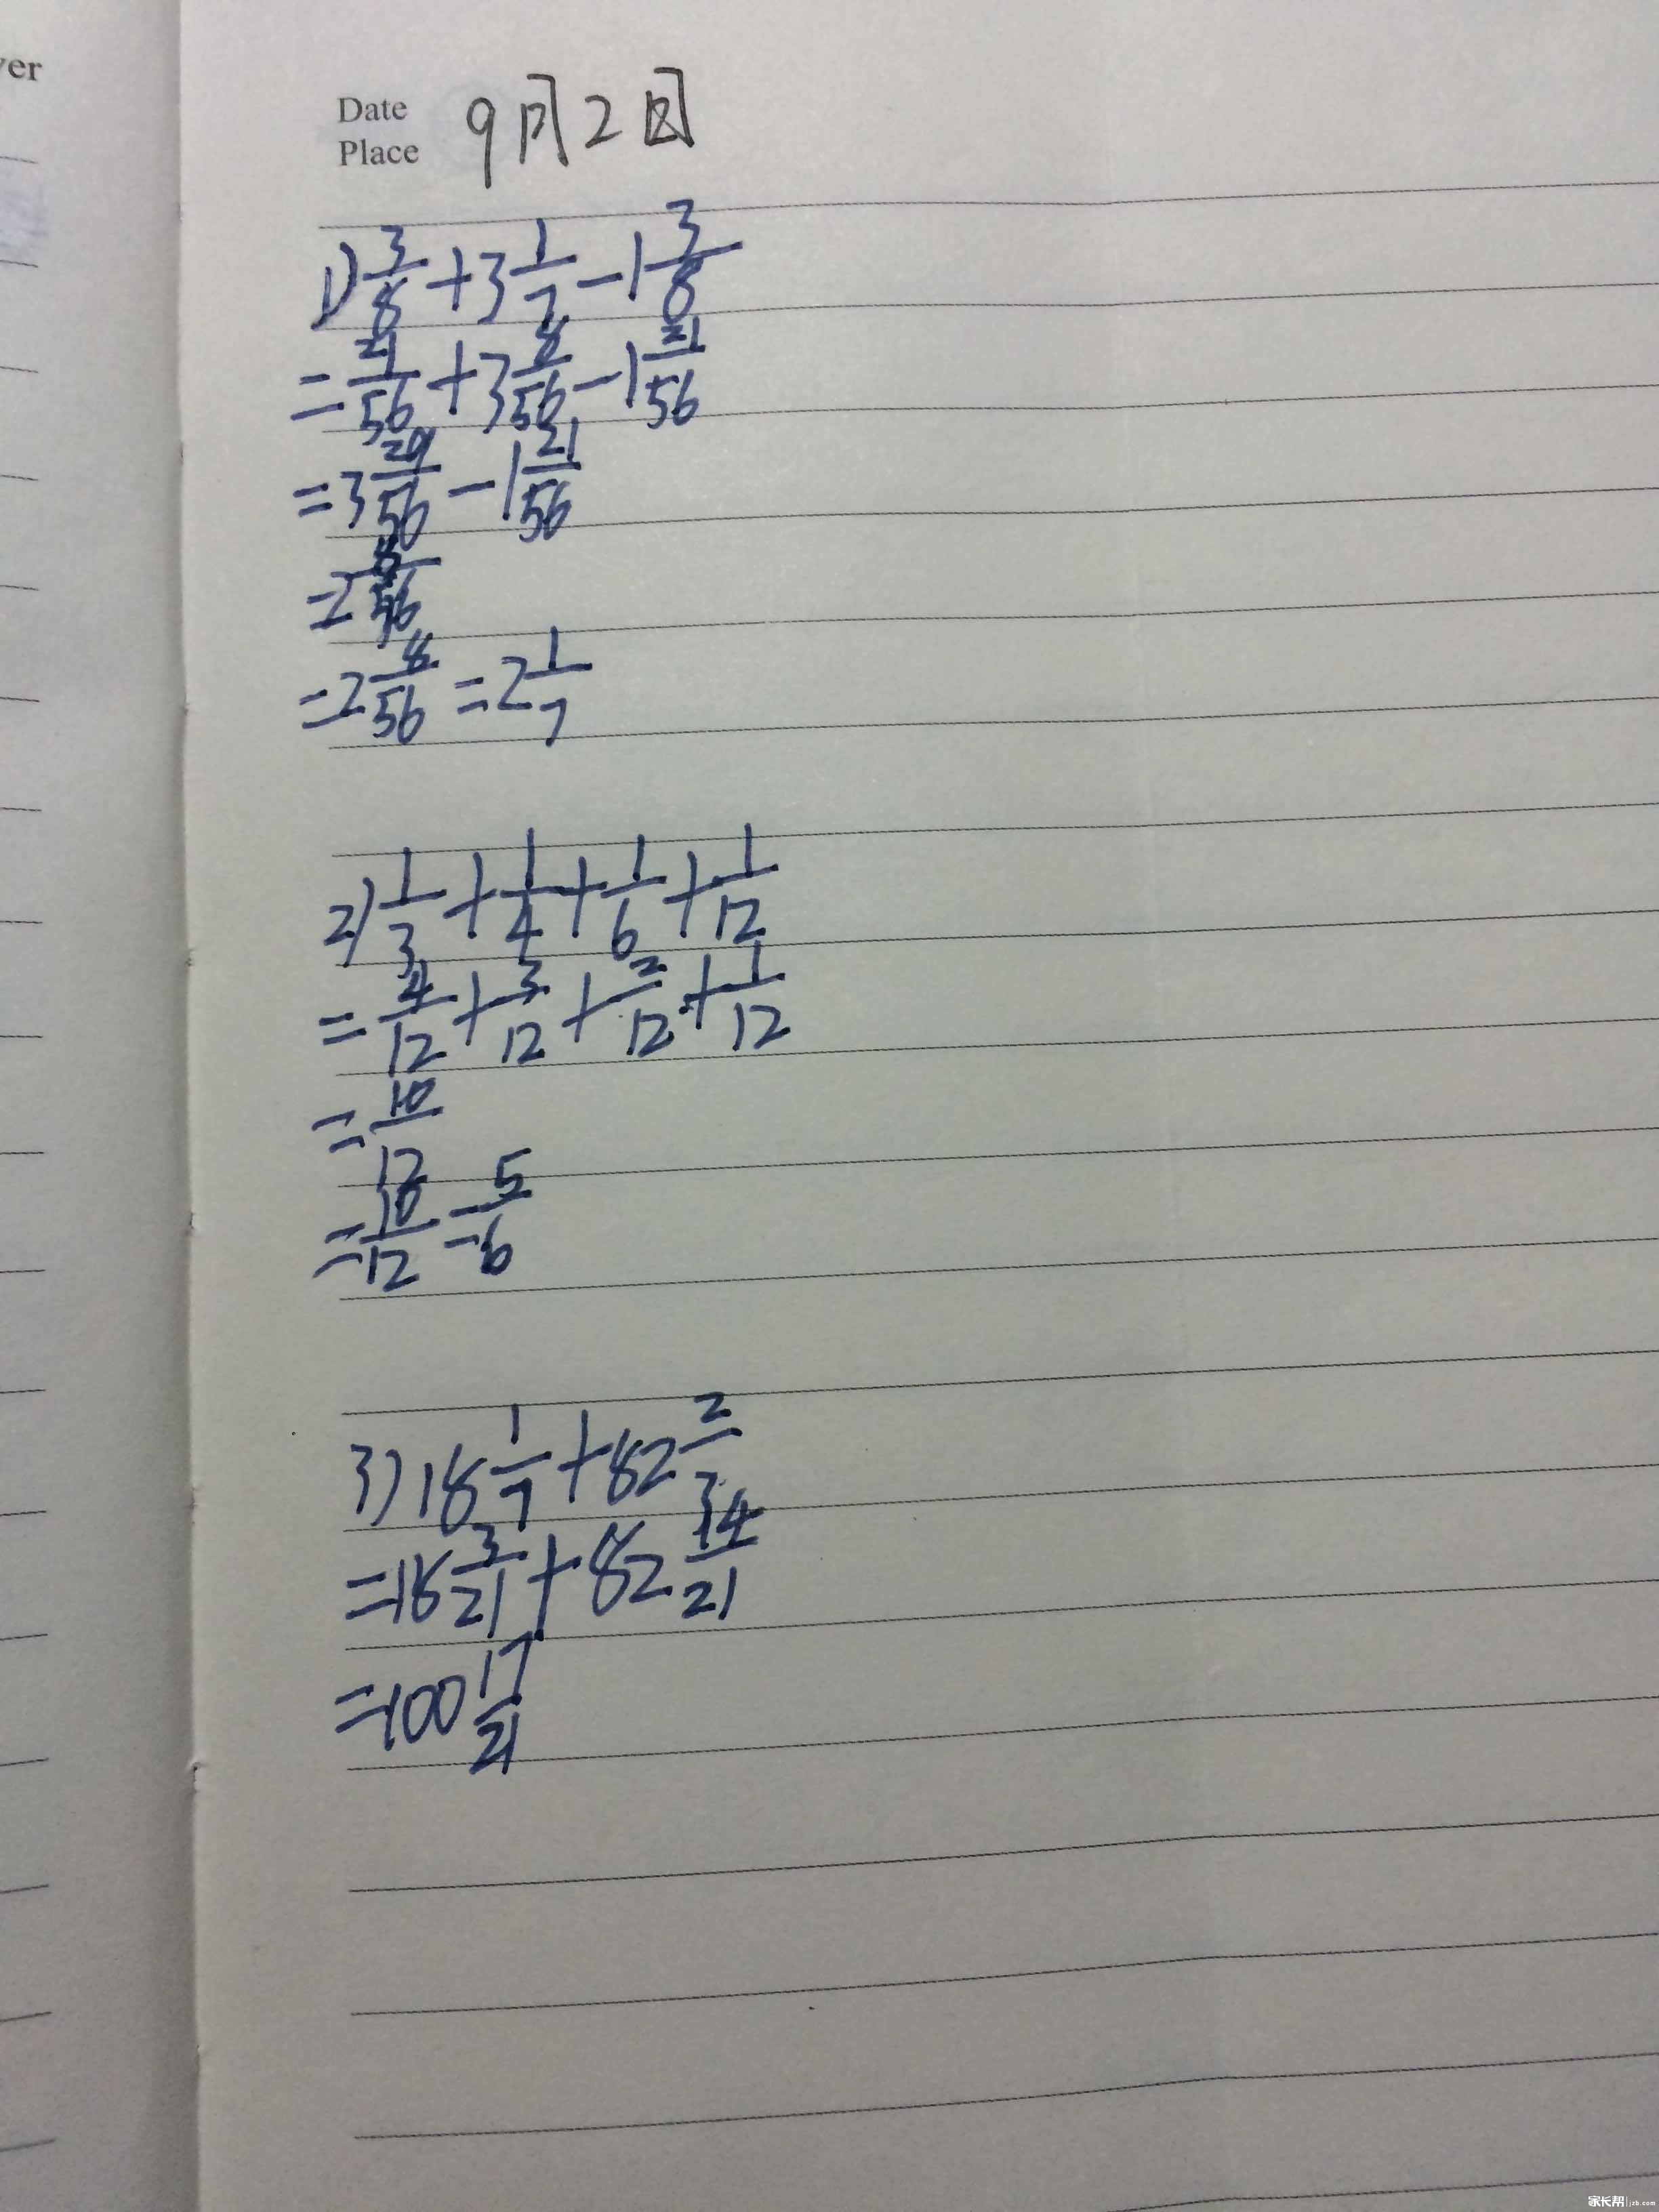 ver
Date 9月2日
Place
1) 3/8 + 3 1/7 - 1 3/8
= 21/56 + 3 8/56 - 1 21/56
= 3 29/56 - 1 21/56
= 2 8/56
= 2 8/56 = 2 1/7
2) 1/3 + 1/4 + 1/6 + 1/12
= 4/12 + 3/12 + 2/12 + 1/12
= 10/12
= 10/12 = 5/6
3) 18 1/7 + 82 2/3
= 18 3/21 + 82 14/21
= 100 17/21
家长帮 | jzb.com